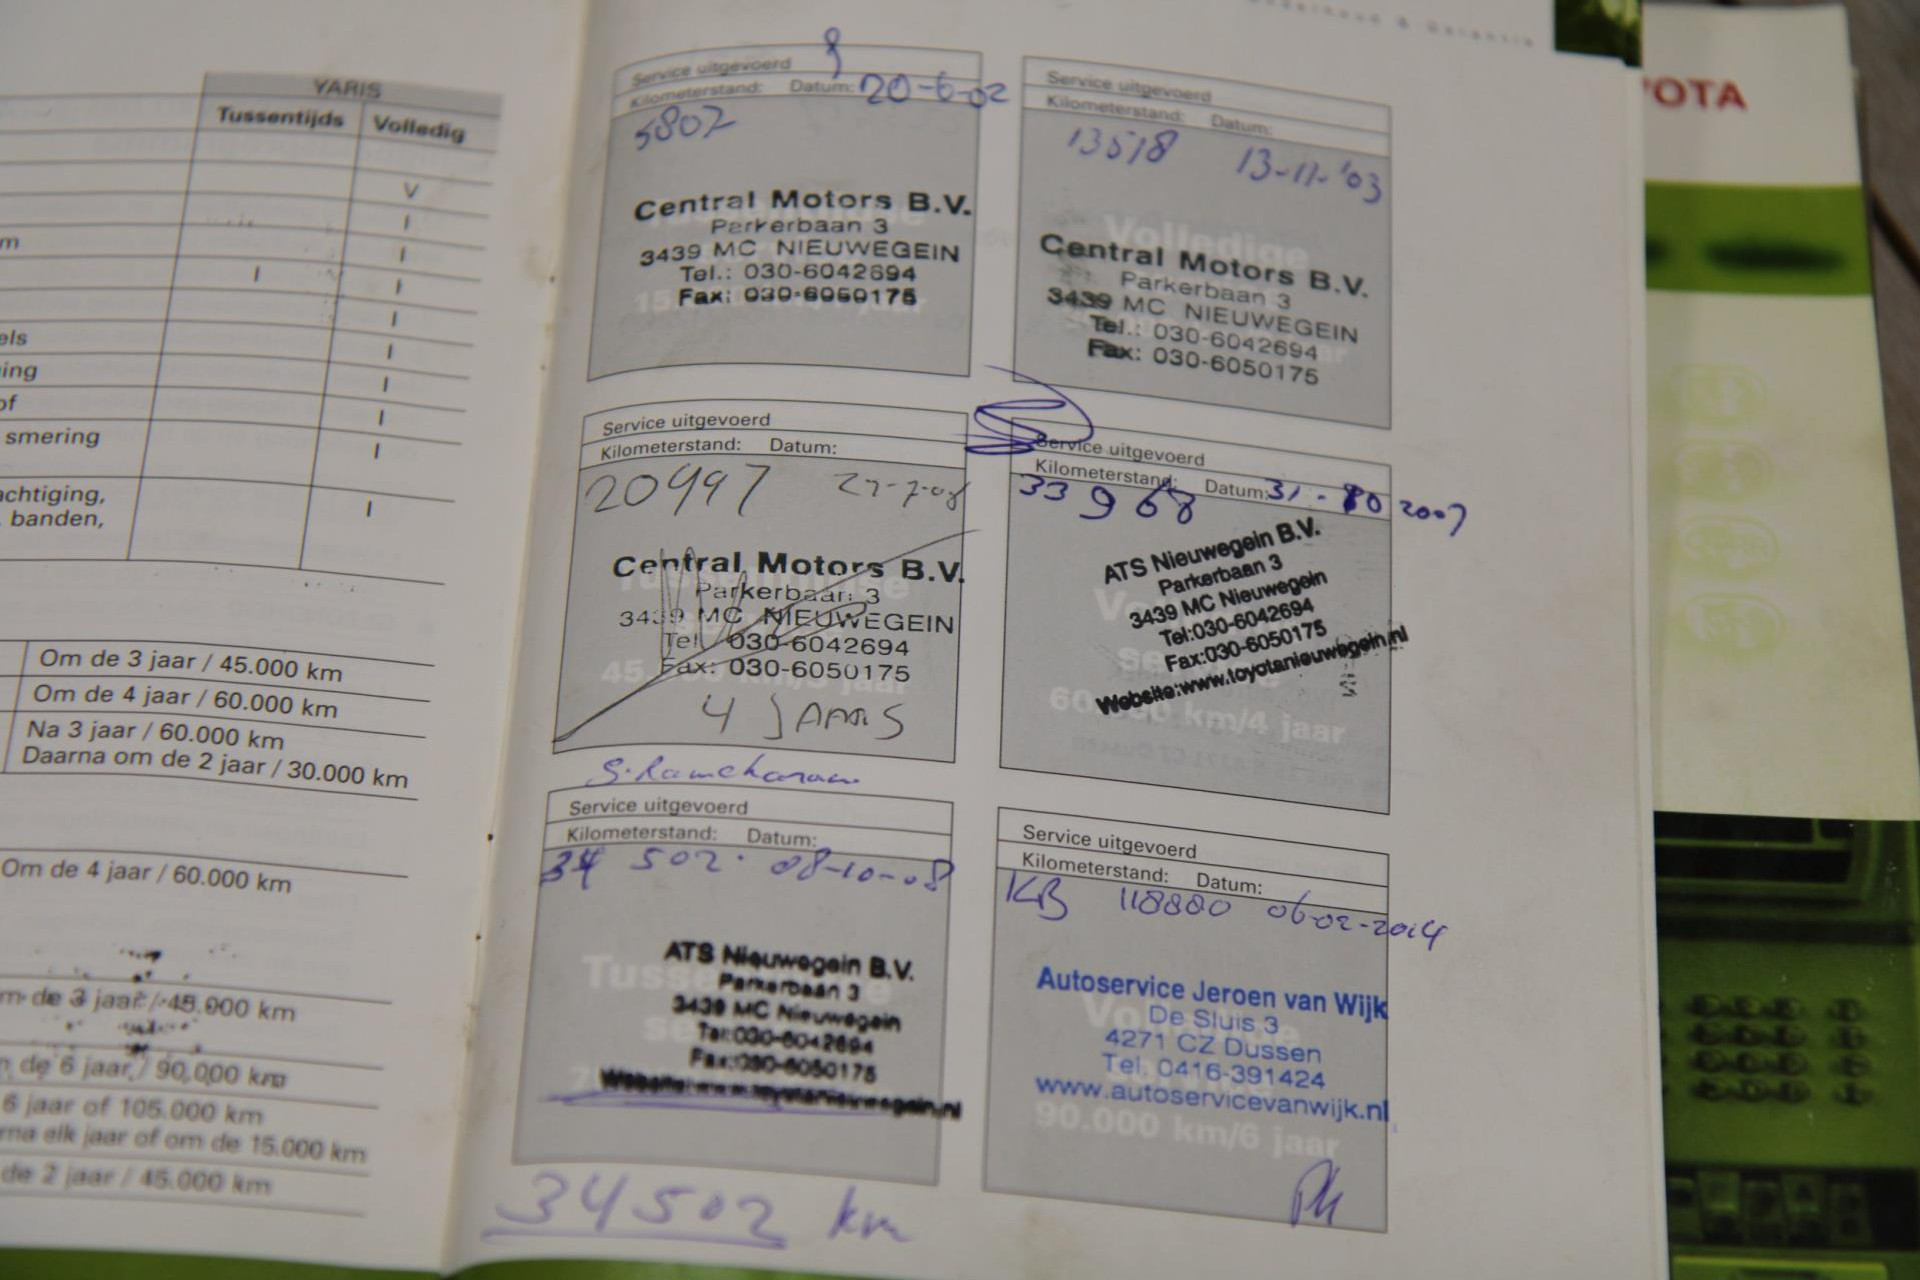 Onderhoud & Garantie
YARIS
Tussentijds Volledig
V
I
I
I I
I
els I
ing I
of I
smering I
achtiging,
banden, I
Om de 3 jaar / 45.000 km
Om de 4 jaar / 60.000 km
Na 3 jaar / 60.000 km
Daarna om de 2 jaar / 30.000 km
Om de 4 jaar / 60.000 km
m de 3 jaar / 45.000 km
de 6 jaar / 90.000 km
6 jaar of 105.000 km
rna elk jaar of om de 15.000 km
de 2 jaar / 45.000 km
Service uitgevoerd
Kilometerstand: Datum: 20-6-02
5802
Central Motors B.V.
Parkerbaan 3
3439 MC NIEUWEGEIN
Tel.: 030-6042694
Fax: 030-6050175
Service uitgevoerd
Kilometerstand: Datum:
13518 13-11-'03
Volledige
Central Motors B.V.
Parkerbaan 3
3439 MC NIEUWEGEIN
Tel.: 030-6042694
Fax: 030-6050175
Service uitgevoerd
Kilometerstand: Datum:
20997
Central Motors B.V.
Parkerbaan 3
3439 MC NIEUWEGEIN
Tel. 030-6042694
Fax: 030-6050175
45.000 km/3 jaar
4 JAARS
Service uitgevoerd
Kilometerstand: Datum: 31-10 2007
33968
ATS Nieuwegein B.V.
Parkerbaan 3
3439 MC Nieuwegein
Tel:030-6042694
Fax:030-6050175
Website:www.toyotanieuwegein.nl
60.000 km/4 jaar
Service uitgevoerd
Kilometerstand: Datum:
34 502. 08-10-08
ATS Nieuwegein B.V.
Parkerbaan 3
3439 MC Nieuwegein
Tel:030-6042694
Fax:030-6050175
Website:www.toyotanieuwegein.nl
34502 km
Service uitgevoerd
Kilometerstand: Datum:
KB 118880 06-02-2014
Autoservice Jeroen van Wijk
De Sluis 3
4271 CZ Dussen
Tel. 0416-391424
www.autoservicevanwijk.nl
90.000 km/6 jaar
YOTA